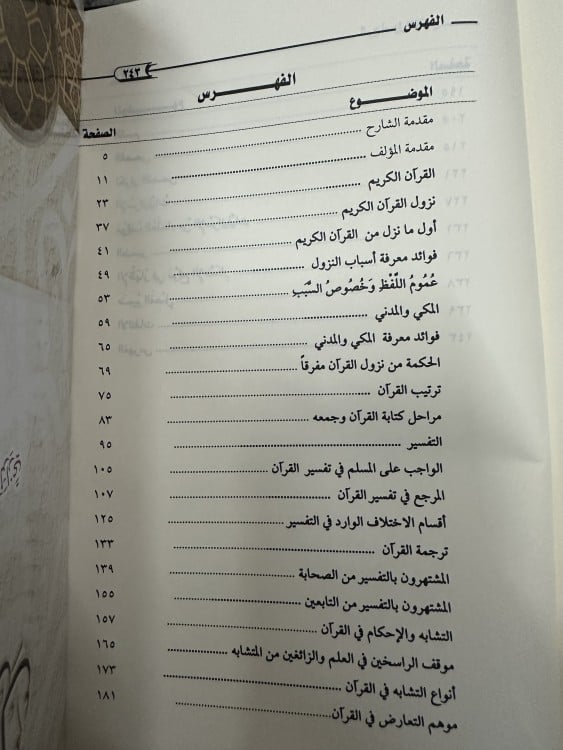 الفهرس
٢٤٣
الفهرس
الموضوع الصفحة
مقدمة الشارح ........ ٥
مقدمة المؤلف ........ ١١
القرآن الكريم ........ ٢٣
نزول القرآن الكريم ........ ٣٧
أول ما نزل من القرآن الكريم ........ ٤١
فوائد معرفة أسباب النزول ........ ٤٩
عُمُومُ اللَّفْظِ وَخُصُوصُ السَّبَبِ ........ ٥٣
المكي والمدني ........ ٥٩
فوائد معرفة المكي والمدني ........ ٦٥
الحكمة من نزول القرآن مفرقاً ........ ٦٩
ترتيب القرآن ........ ٧٥
مراحل كتابة القرآن وجمعه ........ ٨٣
التفسير ........ ٩٥
الواجب على المسلم في تفسير القرآن ........ ١٠٥
المرجع في تفسير القرآن ........ ١٠٧
أقسام الاختلاف الوارد في التفسير ........ ١٢٥
ترجمة القرآن ........ ١٣٣
المشتهرون بالتفسير من الصحابة ........ ١٣٩
المشتهرون بالتفسير من التابعين ........ ١٥٥
التشابه والإحكام في القرآن ........ ١٥٧
موقف الراسخين في العلم والزائغين من المتشابه ........ ١٦٥
أنواع التشابه في القرآن ........ ١٧٣
موهم التعارض في القرآن ........ ١٨١